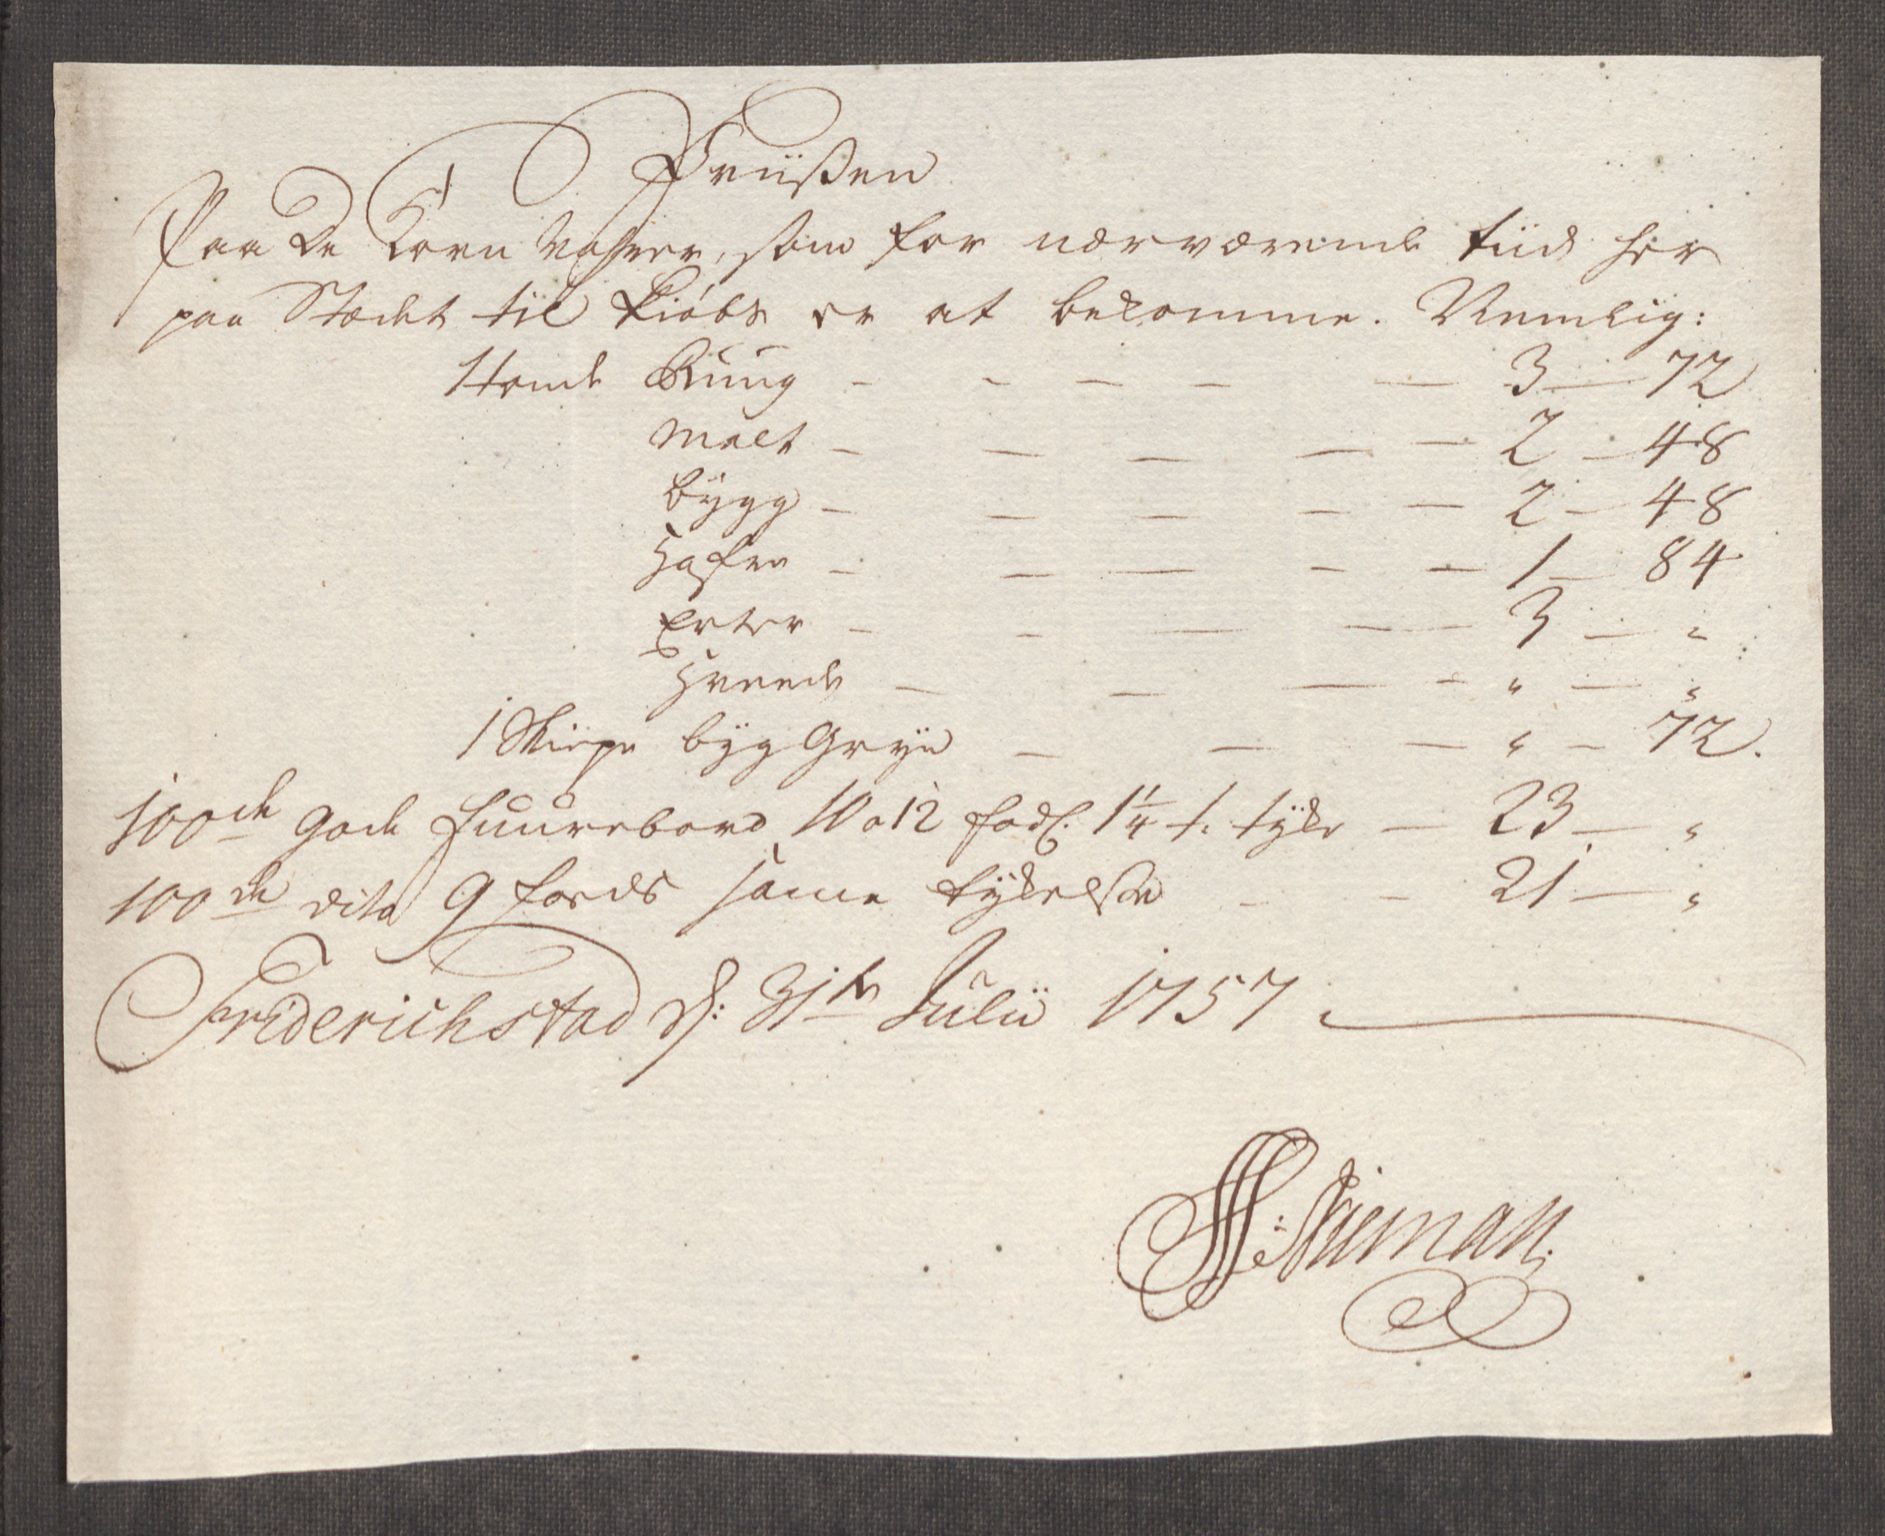 Priißen
Paa De Korn Vahrer, som for nærværende tiid her
paa Stædet til kiøbs er at bekomme. Nemlig:
1 tønde Rüug - - - - - 3 - 72
Malt - - - - - 2 - 48
bÿgg - - - - - 2 - 48
Hafre - - - - - 1 - 84
Erter - - - - - 3 - "
Hveede - - - - " - "
1 Skiepe bÿg Grÿn - - - " - 72.
100de gode Fuurebord 10 a 12 fods 1 1/4 t. tÿke - 23 - "
100de dito 9 foeds same tÿkelse - - 21 - "
Friderichstad d: 31te Julii 1757